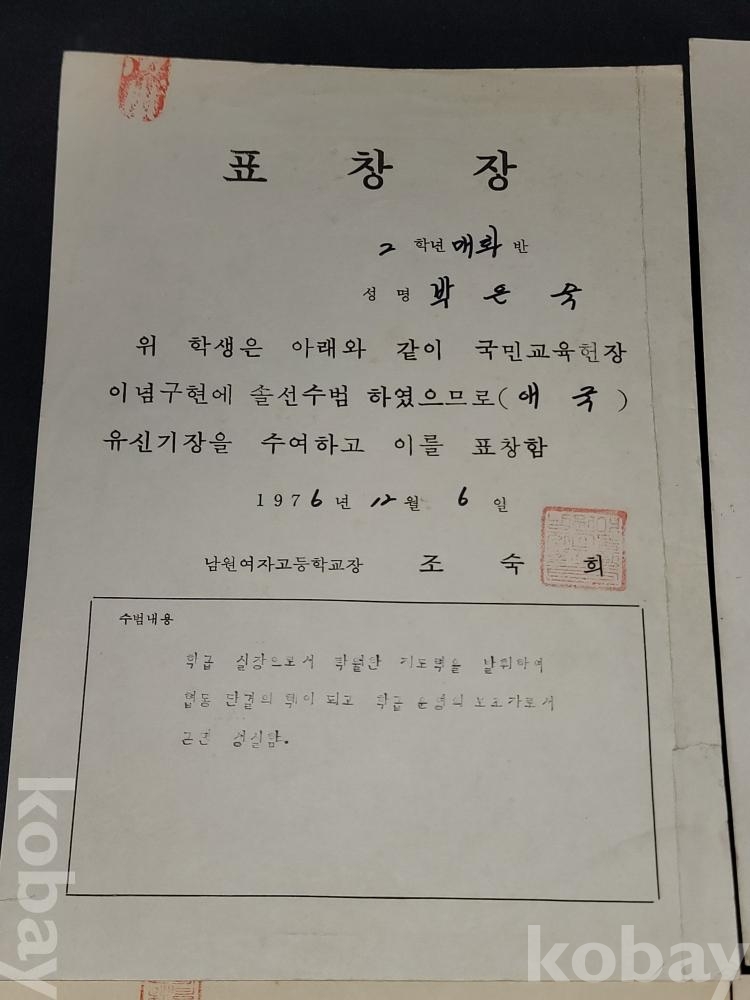 표 창 장
2 학년 매화 반
성 명 박 은 숙
위 학생은 아래와 같이 국민교육헌장
이념구현에 솔선수범 하였으므로( 애 국 )
유신기장을 수여하고 이를 표창함
1976년 12월 6일
남원여자고등학교장 조 숙 희
수범내용
학급 실장으로서 탁월한 지도력을 발휘하여
협동 단결의 핵이 되고 학급 운영의 보조자로서
근면 성실함.
kobay
kobay